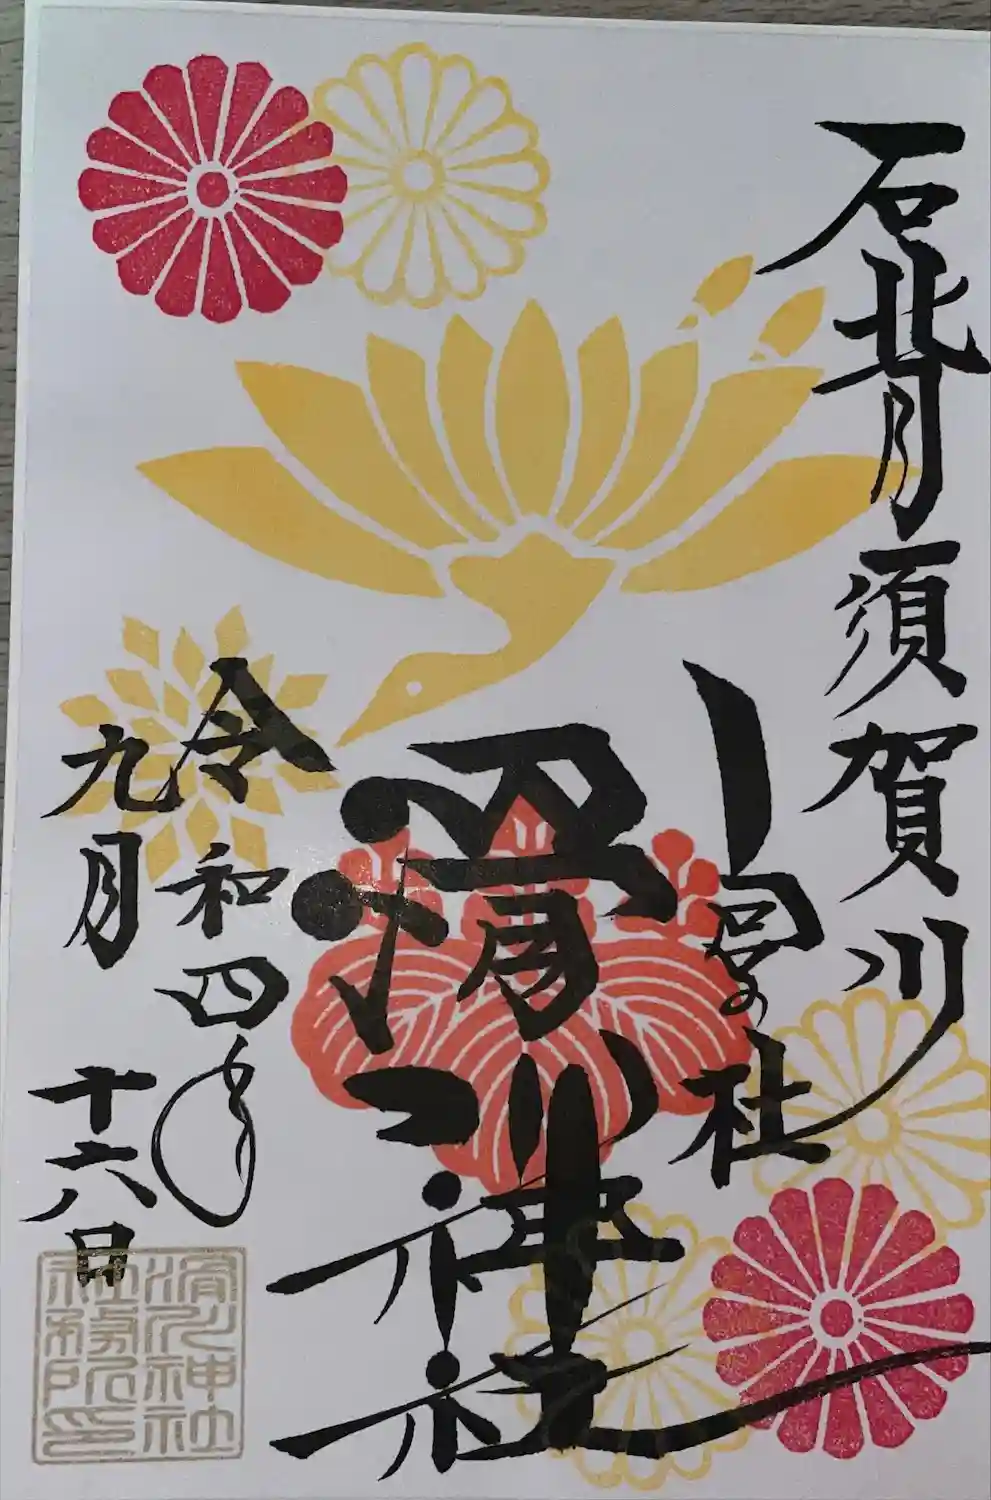 石背須賀川
の社
滑川神社
令和四年
九月十六日
滑川神社
社務所印